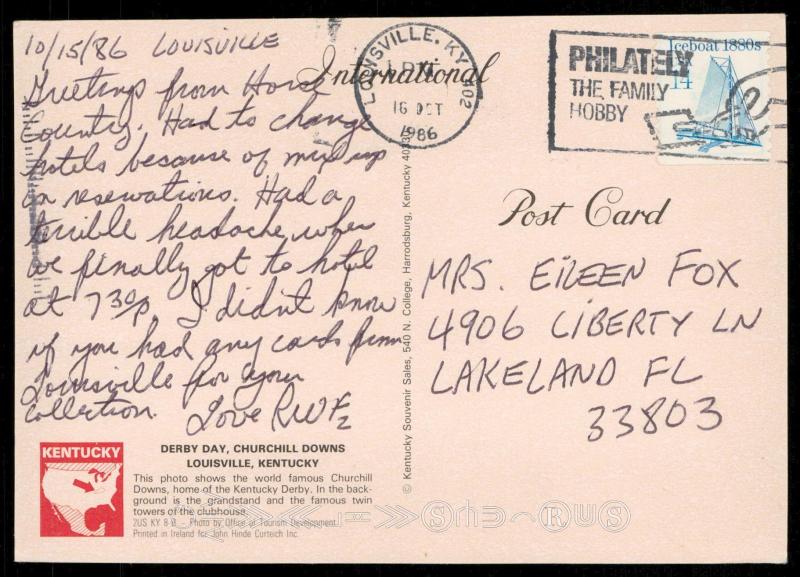 10/15/86 LOUISVILLE
Greetings from Horse
Country. Had to change
hotels because of mix up
on reservations. Had a
terrible headache when
we finally got to hotel
at 730p. I didn't know
if you had any cards from
Louisville for your
collection. Love RWF2
KENTUCKY
DERBY DAY, CHURCHILL DOWNS
LOUISVILLE, KENTUCKY
This photo shows the world famous Churchill
Downs, home of the Kentucky Derby. In the back-
ground is the grandstand and the famous twin
towers of the clubhouse.
2US KY 8 - Photo by Office of Tourism Development
Printed in Ireland for John Hinde Curteich Inc.
© Kentucky Souvenir Sales, 540 N. College, Harrodsburg, Kentucky 40330
International
Post Card
LOUISVILLE, KY 402
16 OCT
1986
PHILATELY
THE FAMILY
HOBBY
Iceboat 1880s
14
MRS. EILEEN FOX
4906 LIBERTY LN
LAKELAND FL
33803